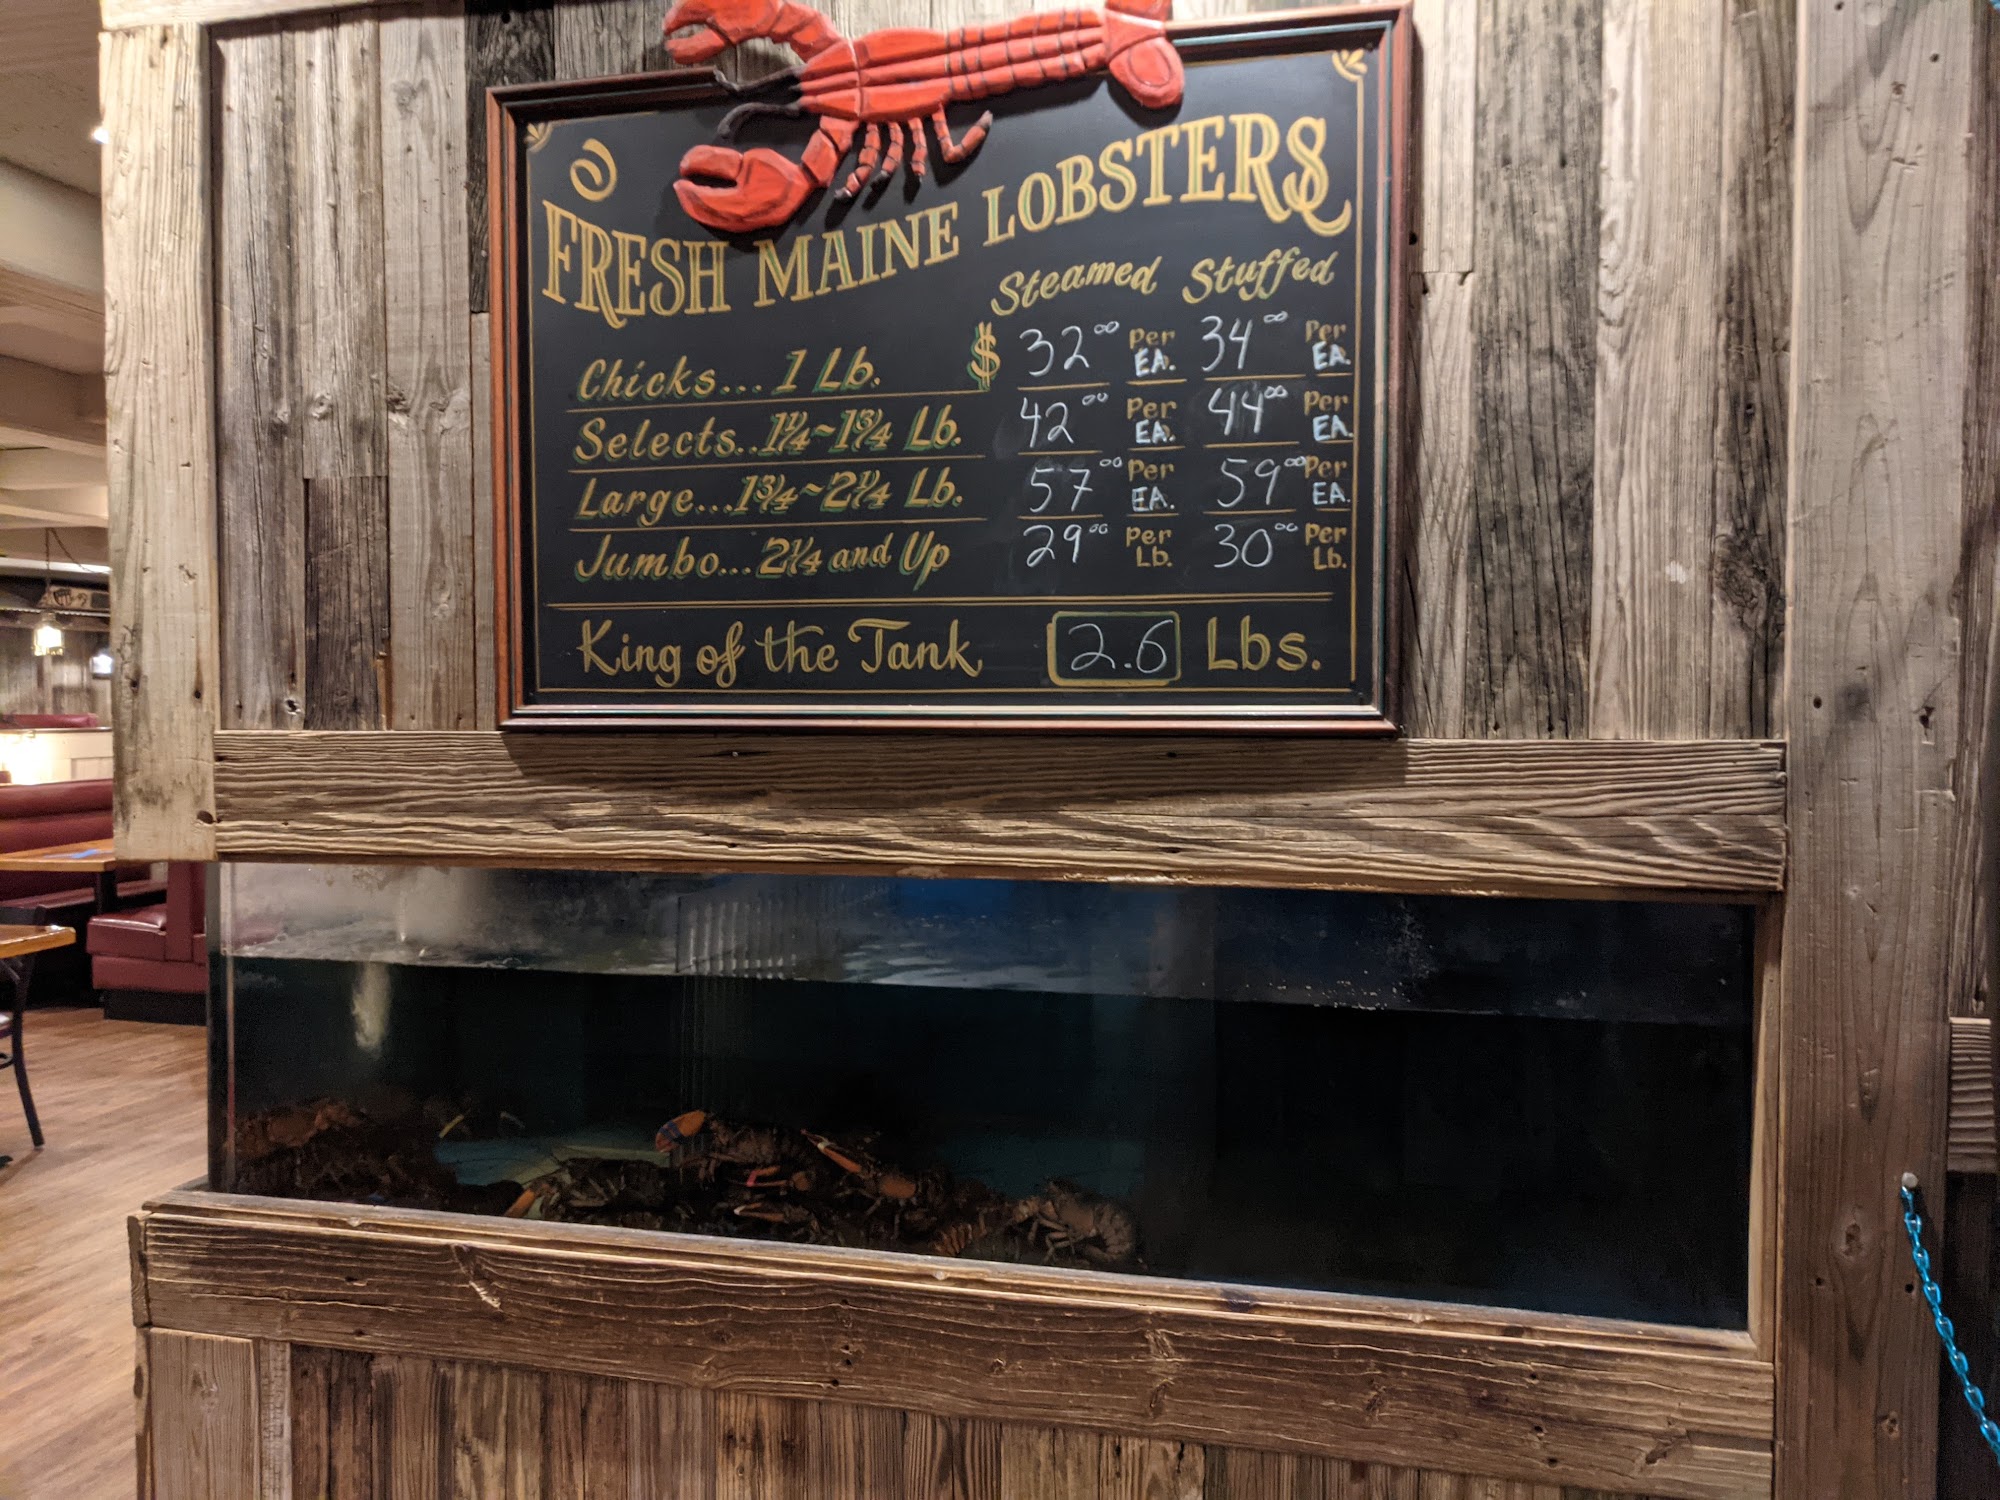 FRESH MAINE LOBSTERS
Steamed Stuffed
Chicks... 1 Lb. $ 32.00 Per EA. 34.00 Per EA.
Selects.. 1 1/4 ~ 1 3/4 Lb. 42.00 Per EA. 44.00 Per EA.
Large... 1 3/4 ~ 2 1/4 Lb. 57.00 Per EA. 59.00 Per EA.
Jumbo... 2 1/4 and Up 29.00 Per Lb. 30.00 Per Lb.
King of the Tank 2.6 Lbs.